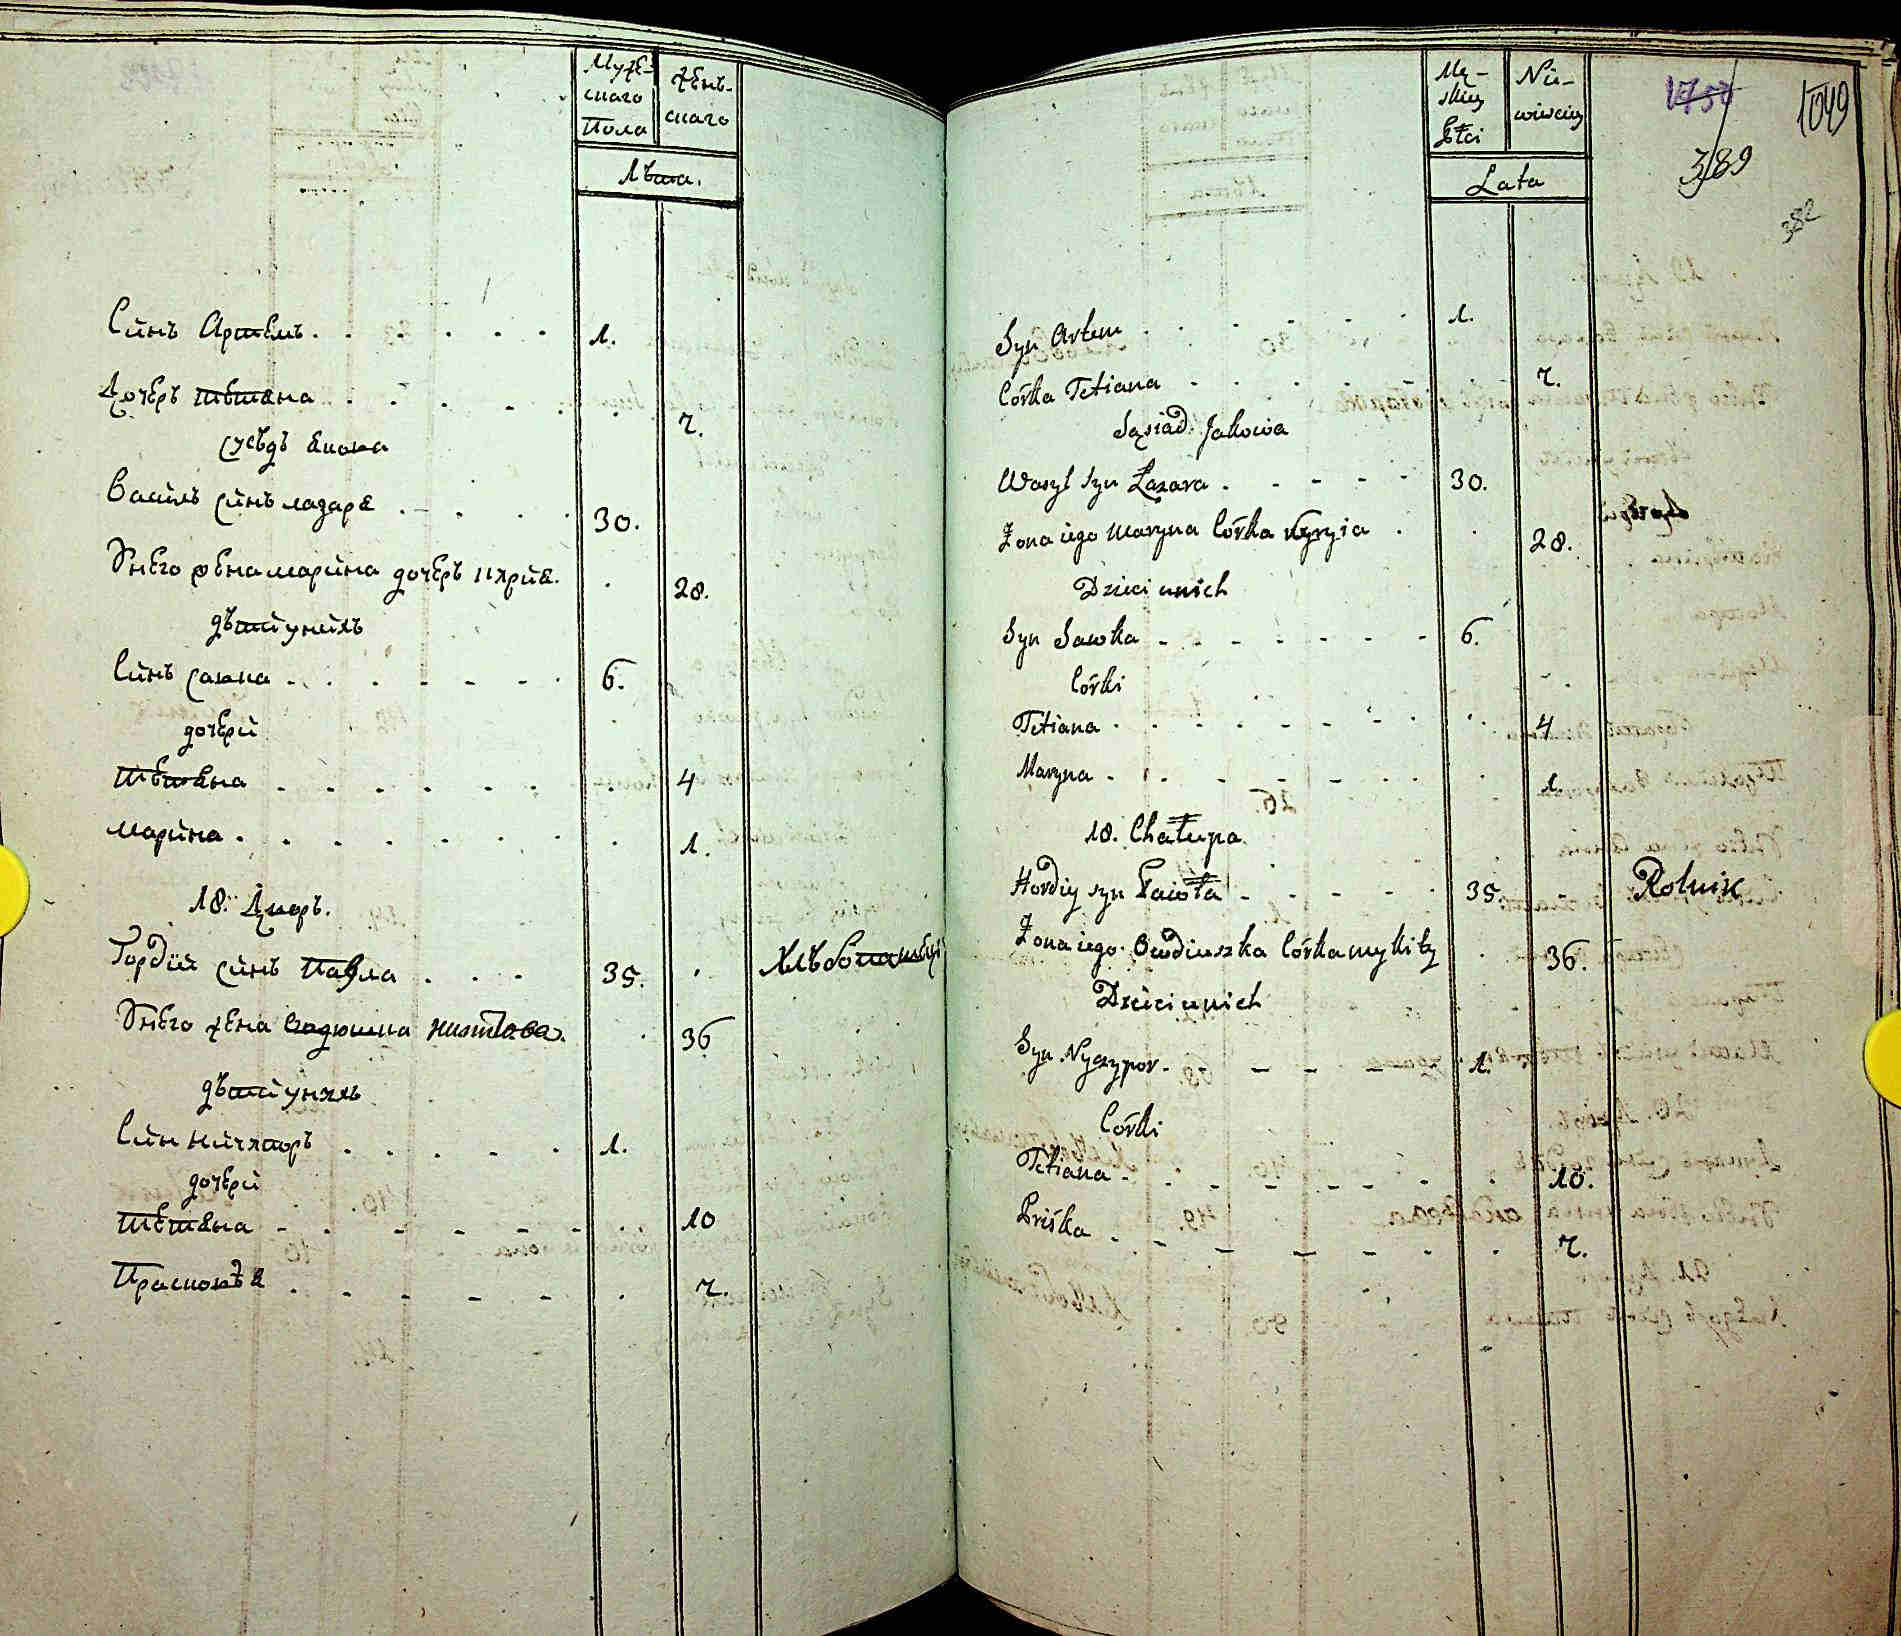 Мужескаго Пола
Женьскаго
Лѣта.
Синъ Артемъ 1.
Дочеръ тетяна 7.
сусѣдъ якова
Василъ синъ лазаря 30.
Унего жена марина дочеръ кирия. 28.
дѣти унихъ
Синъ савка 6.
дочери
тетяна 4
марина 1.
18. Дворъ.
Гордій синъ Павла 35. Хлѣбопашецъ
Унего жена Овдюшка никитова. 36
дѣти унихъ
Син ничипоръ 1.
дочери
тетяна 10
Прасковѣя 7.
Męskiey Płci
Niewiesciey
Lata
1049
389
382
Syn Artem 1.
Córka Tetiana 7.
Sąsiad Jakowa
Wasyl syn Łazara 30.
Żona iego Maryna Córka Kyryia 28.
Dzieci unich
Syn Sawka 6.
Córki
Tetiana 4
Maryna 1.
18. Chałupa
Hordiy syn Pawła 35. Rolnik
Żona iego Owdiuszka Córka mykity 36.
Dzieci unich
Syn Nyczypor 1.
Córki
Tetiana 10.
Priśka 7.